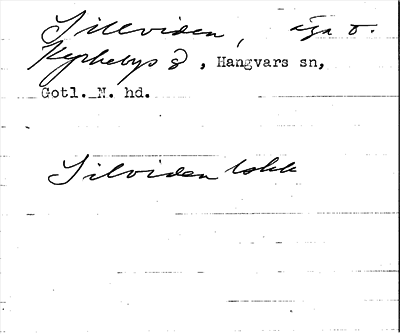 Sillviden, äga o.
Kyrkebys 8, Hangvars sn,
Gotl. N. hd.
Silviden